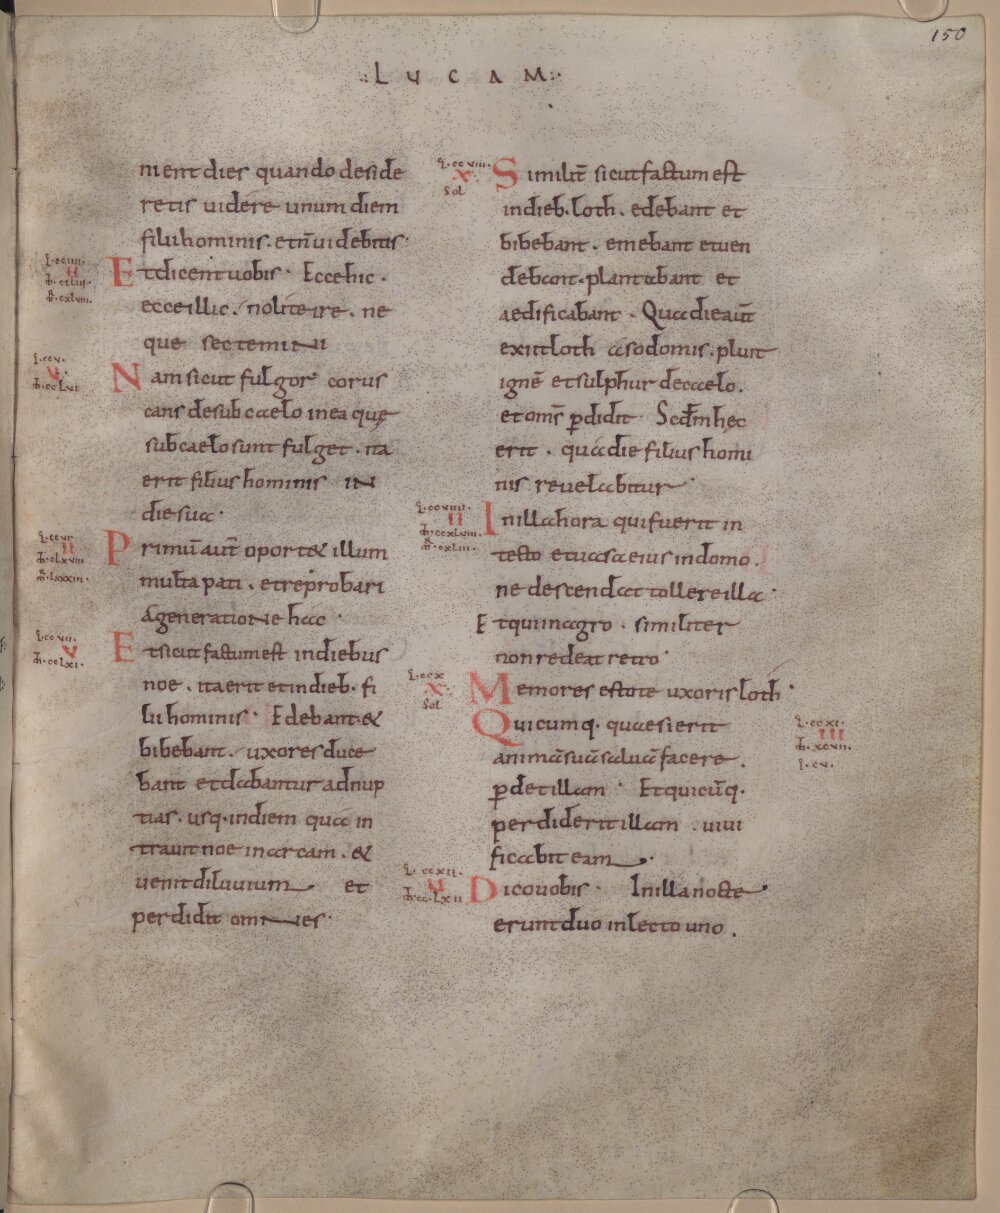 150
·:LUCAM:·
nient dies quando deside
retis uidere unum diem
filii hominis. et n̄ uidebitis·
Et dicent uobis· Ecce hic.
ecce illic. nolite ire. ne
que sectemini
Nam sicut fulgor corus
cans de sub caelo in ea quę
sub caelo sunt fulget. ita
erit filius hominis IN
die sua·
Primū aut̄ oport& illum
multa pati. et reprobari
a generatione hac·
Et sicut factum est in diebus
noe. ita erit et in dieb. fi
lii hominis· Edebant &
bibebant. uxores duce
bant et dabantur ad nup
tias. usq. in diem qua in
trauit noe in arcam. &
uenit diluuium et
perdidit omnes·
l. cciiii.
II
m̄. cclui.
m̄r. cxlviii.
l. ccv.
V
m̄. cclvi
l. ccvi
II
m̄. clxviii
m̄r. lxxxiii.
l. ccvii.
V
m̄. cclxi.
Similit̄ sicut factum est
in dieb. loth. edebant et
bibebant. emebant et uen
debant. plantabant et
aedificabant. Qua die aut̄
exiit loth a sodomis. pluit
ignē et sulphur de caelo.
et om̄s ꝑdidit· Scdm̄ hęc
erit. qua die filius homi
nis reuelabitur·
In illa hora qui fuerit in
tecto et uasa eius in domo.
ne descendat tollere illa·
Et qui in agro. similiter
non redeat retro·
Memores estote uxoris loth·
Quicumq. quaesierit
animā suā saluā facere.
ꝑdet illam· Et quicūq.
perdiderit illam. uiui
ficabit eam.
Dico uobis· In illa nocte·
erunt duo in lecto uno.
l. ccviii.
X
Sol
l. ccviiii.
II
m̄. ccxlviii.
m̄r. cxliii.
l. ccx
X
Sol
l. ccxi.
III
m̄. xcvii.
l. cv.
l. ccxii.
V
m̄. cclxii